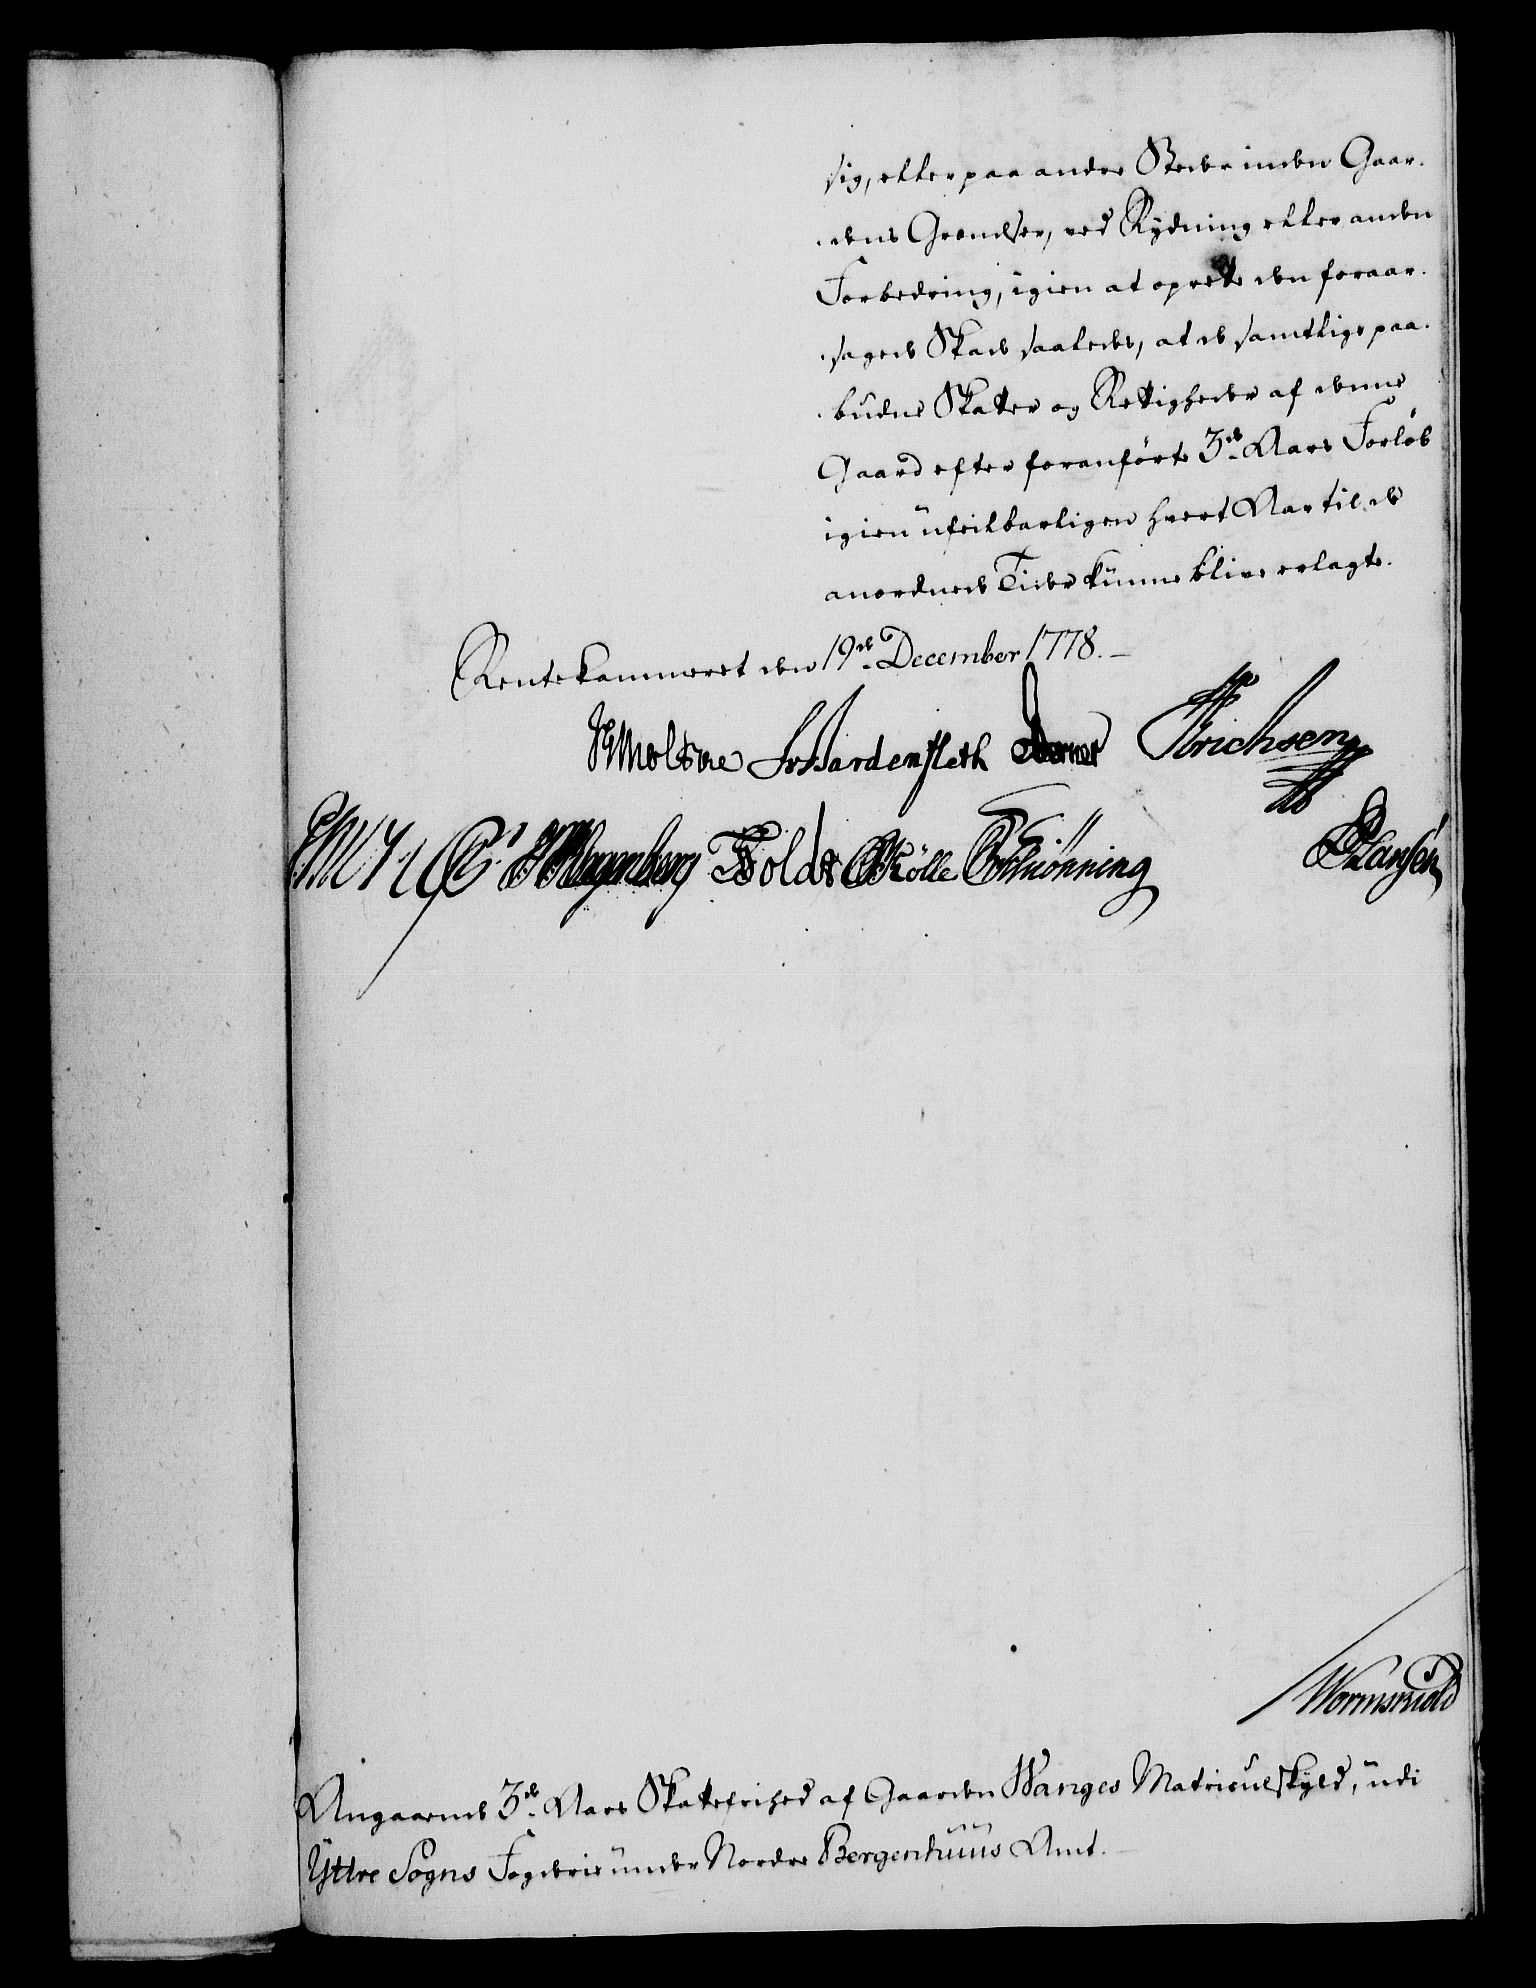 sig, eller paa andre Steder inden Gaar-
dens Grendser, ved Rydning eller anden
Forbedring, igien at oprette den foraar-
sagede Skade saaledes, at de samtlige paa-
budne Skatter og Rettigheder af denne
Gaard efter foranførte 3de Aars Forløb
igien ufeilbarligen hvert Aar til de
anordnede Tider kunne blive erlagte.
Rentekammeret den 19de December 1778.
HMoltke Hardenfleth Berner Erichsen
Wegenberg Holdt Rølle Schiønning Hansen
Wormskiold
Angaaende 3de Aars Skattefrihed af Gaarden Wanges Matriculskyld, udi
Yttre Sogns Fogderie under Nordre Bergenhuus Amt.